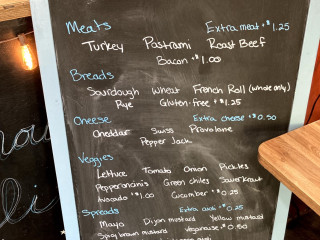 Meats Extra meat +$1.25
Turkey Pastrami Roast Beef
Bacon +$1.00
Breads
Sourdough Wheat French Roll (whole only)
Rye Gluten-free +$1.25
Cheese Extra cheese +$0.50
Cheddar Swiss Provolone
Pepper Jack
Veggies
Lettuce Tomato Onion Pickles
Peperoncinis Green chiles Sauerkraut
Avocado +$1.00 Cucumber +$0.25
Spreads Extra +$0.25
Mayo Dijon mustard Yellow mustard
Spicy brown mustard Veganaise +$0.50